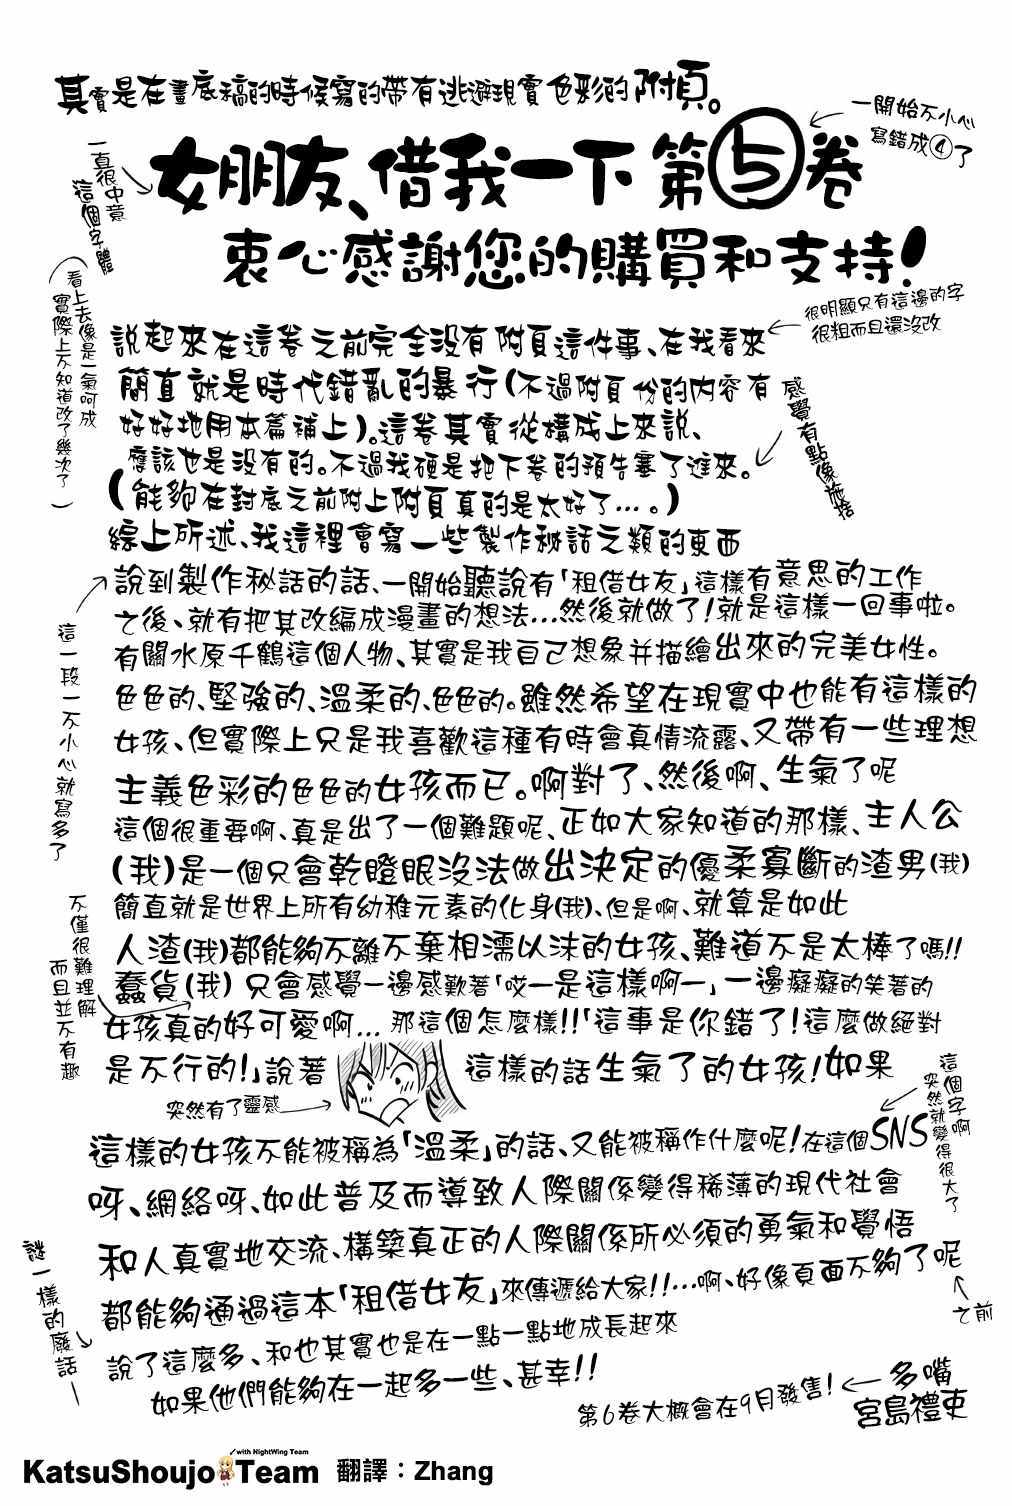 其實是在畫底稿的時候寫的帶有逃避現實色彩的附頁。
一開始不小心
寫錯成④了
一直很中意
這個字體
女朋友、借我一下 第5卷
衷心感謝您的購買和支持!
看上去像是一氣呵成
實際上不知道改了幾次了
很明顯只有這邊的字
很粗而且還沒改
說起來在這卷之前完全沒有附頁這件事、在我看來
簡直就是時代錯亂的暴行(不過附頁份的內容有
好好地用本篇補上)。這卷其實從構成上來說、
應該也是沒有的。不過我硬是把下卷的預告塞了進來。
(能夠在封底之前附上附頁真的是太好了…。)
感覺有點像施捨
綜上所述、我這裡會寫一些製作秘話之類的東西
說到製作秘話的話、一開始聽說有「租借女友」這樣有意思的工作
之後、就有把其改編成漫畫的想法…然後就做了!就是這樣一回事啦。
有關水原千鶴這個人物、其實是我自己想象并描繪出來的完美女性。
色色的、堅強的、溫柔的、色色的。雖然希望在現實中也能有這樣的
女孩、但實際上只是我喜歡這種有時會真情流露、又帶有一些理想
主義色彩的色色的女孩而已。啊對了、然後啊、生氣了呢
這一段一不小心就寫多了
這個很重要啊、真是出了一個難題呢、正如大家知道的那樣、主人公
(我)是一個只會乾瞪眼沒法做出決定的優柔寡斷的渣男(我)
簡直就是世界上所有幼稚元素的化身(我)、但是啊、就算是如此
人渣(我)都能夠不離不棄相濡以沫的女孩、難道不是太棒了嗎!!
蠢貨(我) 只會感覺一邊感歎著「哎一是這樣啊一」一邊癡癡的笑著的
不僅很難理解
而且並不有趣
女孩真的好可愛啊… 那這個怎麼樣!!「這事是你錯了!這麼做絕對
是不行的!」說著 這樣的話生氣了的女孩!如果
突然有了靈感
這個字啊
突然就變得很大了
這樣的女孩不能被稱為「溫柔」的話、又能被稱作什麼呢!在這個SNS
呀、網絡呀、如此普及而導致人際關係變得稀薄的現代社會
和人真實地交流、構築真正的人際關係所必須的勇氣和覺悟
都能夠通過這本「租借女友」來傳遞給大家!!…啊、好像頁面不夠了呢
之前
謎一樣的廢話一
說了這麼多、和也其實也是在一點一點地成長起來
如果他們能夠在一起多一些、甚幸!!
第6卷大概會在9月發售!
多嘴
宮島禮吏
with NightWing Team
KatsuShoujo Team 翻譯：Zhang